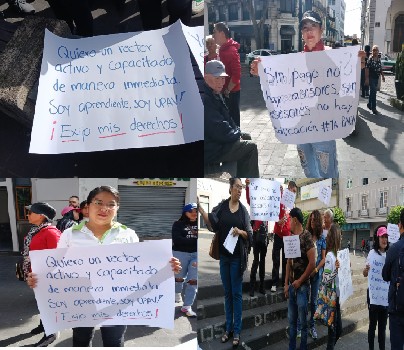 Quiero un rector
activo y capacitado
de manera inmediata
Soy aprendiente, soy UPAV!
¡Exijo mis derechos!
Sin pago no
hay asesores, sin
asesores no hay
educación
Quiero un rector
activo y capacitado
de manera inmediata
Soy aprendiente, soy UPAV!
¡Exijo mis derechos!